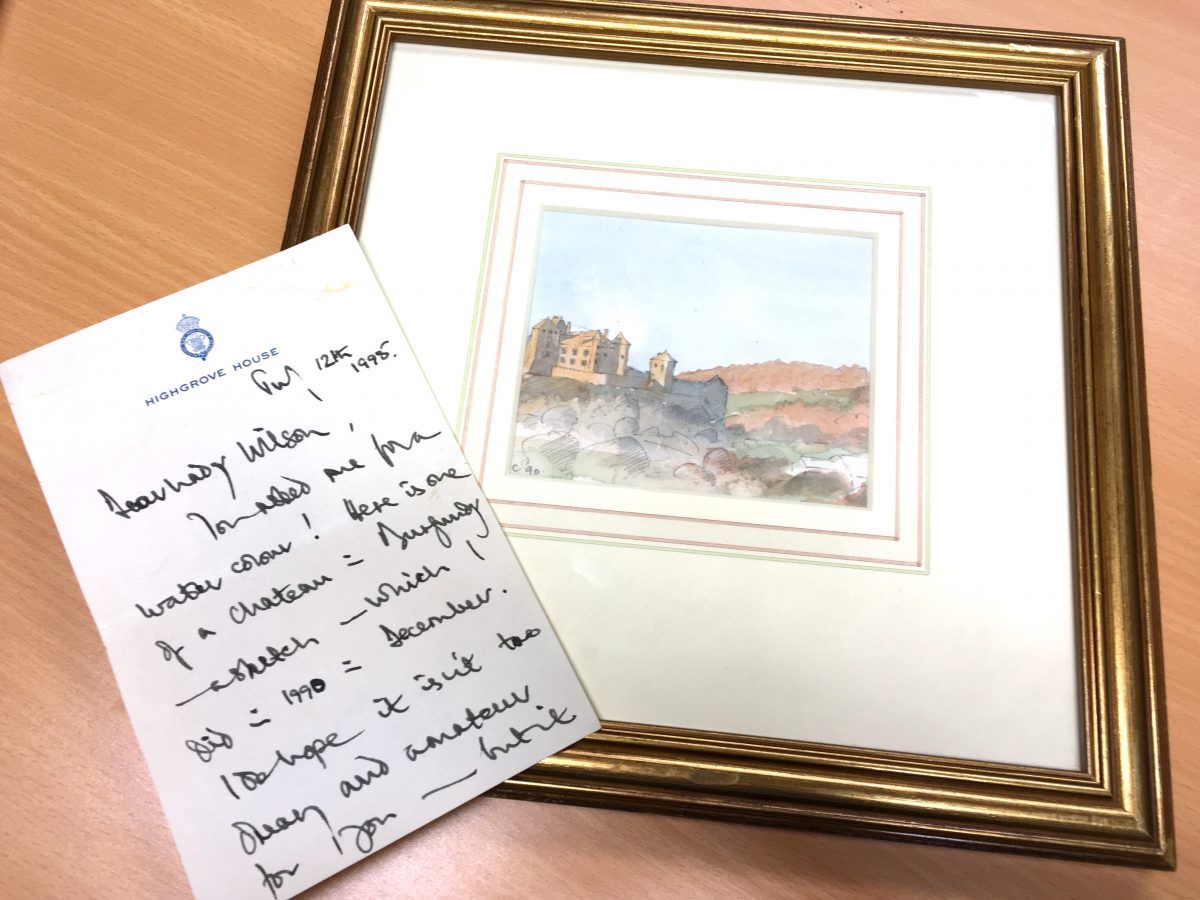 HIGHGROVE HOUSE
12th
1995.
Dear Lady Wilson,
You asked me for a
water colour! Here is one
of a chateau in Burgundy
— a sketch — which I
did in 1990 in December.
I do hope it isn't too
and amateur
for you — but it
C '90